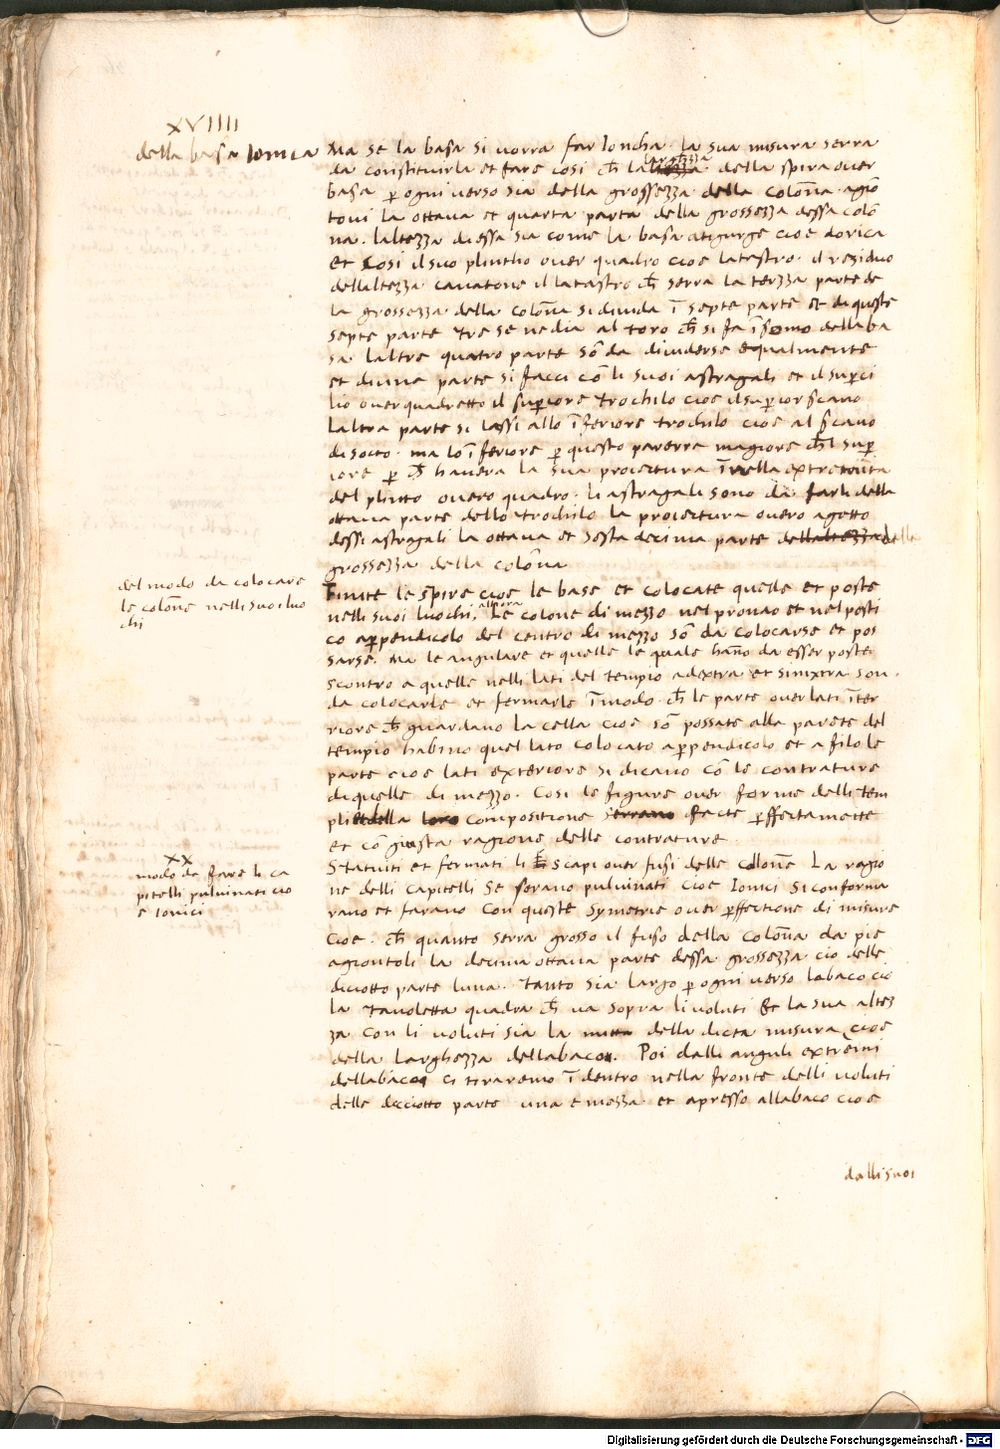 XVIIII
della basa Ionica
Ma se la basa si vorra far Ioncha. la sua misura serra
da constituirla et fare cosi ch̄ la largezza della spira over
basa ꝑ ogni verso sia della grossezza della colon̄a agiō
tovi la ottava et quarta parte della grossezza dessa colō
na. laltezza di essa sia come la basa atigurge cioe dorica
et cosi il suo plintho over quadro cioe latastro. il residuo
dellaltezza cavatone il latastro ch̄ serra la terzza parte de
la grossezza della colon̄a si divida ī septe parte et di queste
septe parte tre se ne dia al toro ch̄ si fa ī somo della ba
sa. laltre quatro parte sōn da dividerse equalmente
et di una parte si facci cō li suoi astragali et il suꝑci
lio over quadretto il suꝑiore trochilo cioe il suꝑior scavo
laltra parte si lassi allo īferiore trochilo cioe al scavo
di socto. ma lo īferiore ꝑ questo parerra magiore ch̄l suꝑ
iore ꝑ ch̄ havera la sua proiectura nella extremita
del plinto overo quadro. li astragali sono da farli della
ottava parte dello trochilo la proiectura overo agetto
dessi astragali la ottava et sesta decima parte della
grossezza della colon̄a
del modo da colocare
le colon̄e nelli suoi luo
chi
Finite le spire cioe le base et colocate quelle et poste
nelli suoi luochi. alhora Le colone di mezzo nel pronao et nel posti
co aꝑpendicolo del centro di mezzo sōn da colocarse et pos
sarse. Ma le angulare et quelle le quale han̄o da esser poste
scontro a quelle nelli lati del tempio adextra et sinixtra son.
da colocarle et fermarle ī modo ch̄ le parte over lati īter
riore ch̄ guardano la cella cioe sōn possate alla parete del
tempio habino quel lato colocato aꝑpendicolo et a filo le
parte cioe lati exteriore si dicano cō le contrature
di quelle di mezzo. Cosi le figure over forme delli tem
pli et della compositione facte ꝑffectamente
et cō giusta ragione delle contrature
XX
modo de fare li ca
pitelli pulvinati cio
e Ionici
Statuiti et fermati li Scapi over fusi delle collon̄e La ragio
ne delli capitelli Se serano pulvinati cioe Ionici Si conforma
rano et farano con queste Symetrie over ꝑffectione di misure
cioe. ch̄ quanto serra grosso il fuso della colon̄a da pie
agiontoli la decima ottava parte dessa grossezza cio delle
diciotto parte luna. tanto sia largo ꝑ ogni verso labaco cio
la tavoletta quadra ch̄ va sopra li voluti Et la sua altez
za con li voluti sia la della dicta misura cioe
della Larghezza dellabaco. Poi dalli anguli extremi
dellabaco ci tiraremo ī dentro nella fronte delli voluti
delle deciotto parte una e mezza. et apresso allabaco cioe
dalli suoi
Digitalisierung gefördert durch die Deutsche Forschungsgemeinschaft - DFG